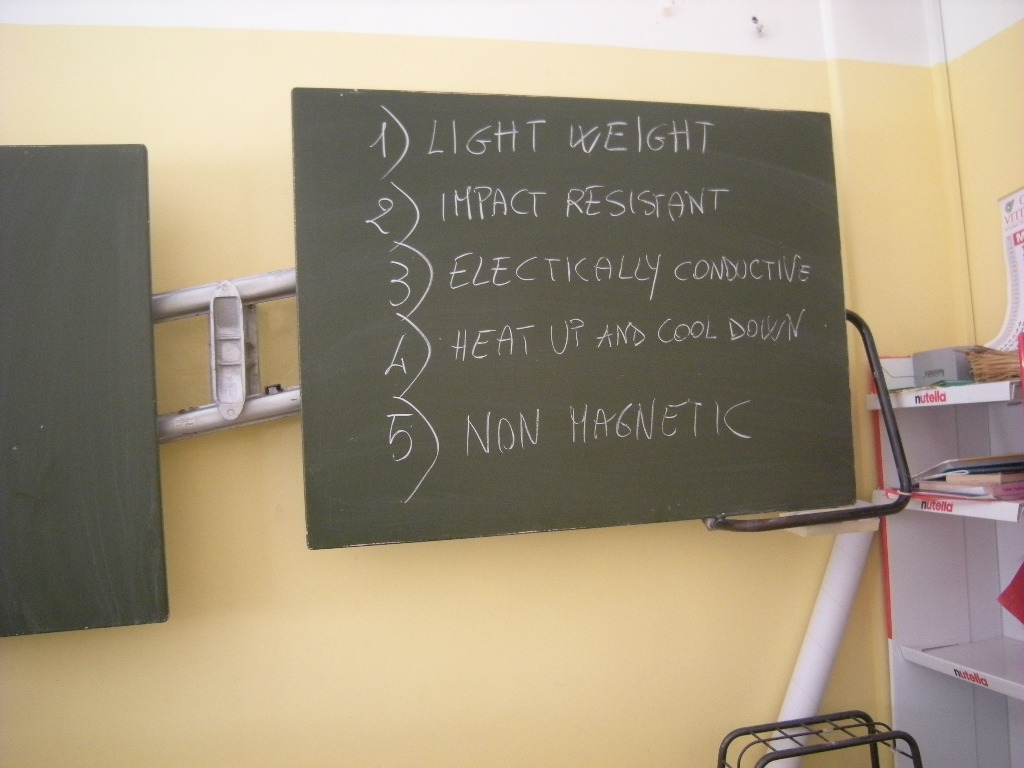 1) LIGHT WEIGHT
2) IMPACT RESISTANT
3) ELECTICALLY CONDUCTIVE
4) HEAT UP AND COOL DOWN
5) NON MAGNETIC
nutella
nutella
nutella